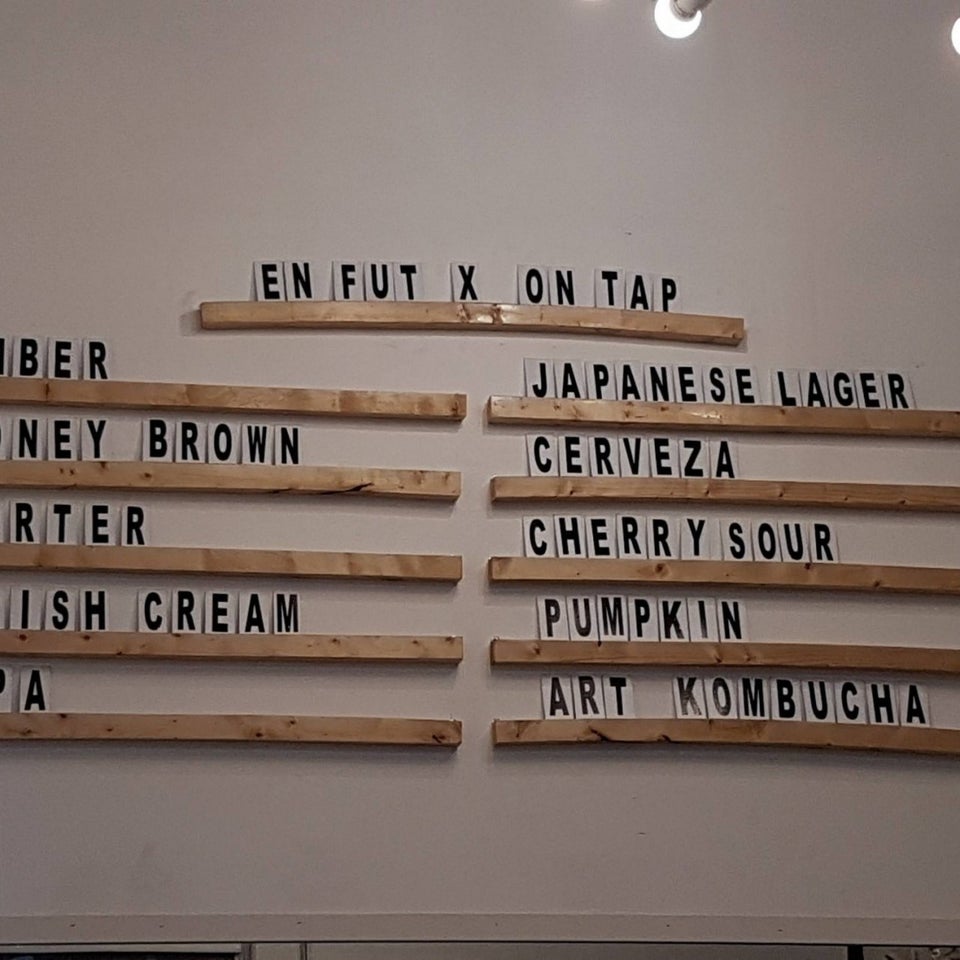 EN FUT X ON TAP
BROWN
CREAM
JAPANESE LAGER
CERVEZA
CHERRY SOUR
PUMPKIN
ART KOMBUCHA